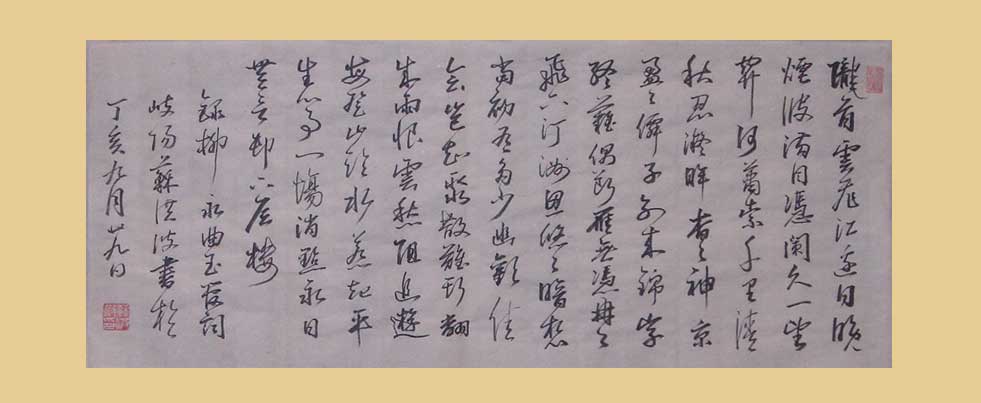 隴首雲飛江邊日晚
煙波滿目憑闌久一望
關河蕭索千里清
秋忍凝眸杳々神京
盈々僊子別來錦字
終難偶斷雁無憑冉々
飛下汀洲思悠々暗想
當初有多少幽歡佳
會豈知聚散難期翻
成雨恨雲愁阻追遊
每登山臨水惹起平
生心事一場消黯永日
無言卻下層樓
錄柳永曲玉管詞
岐陽蘇洪波書於
丁亥九月廿九日